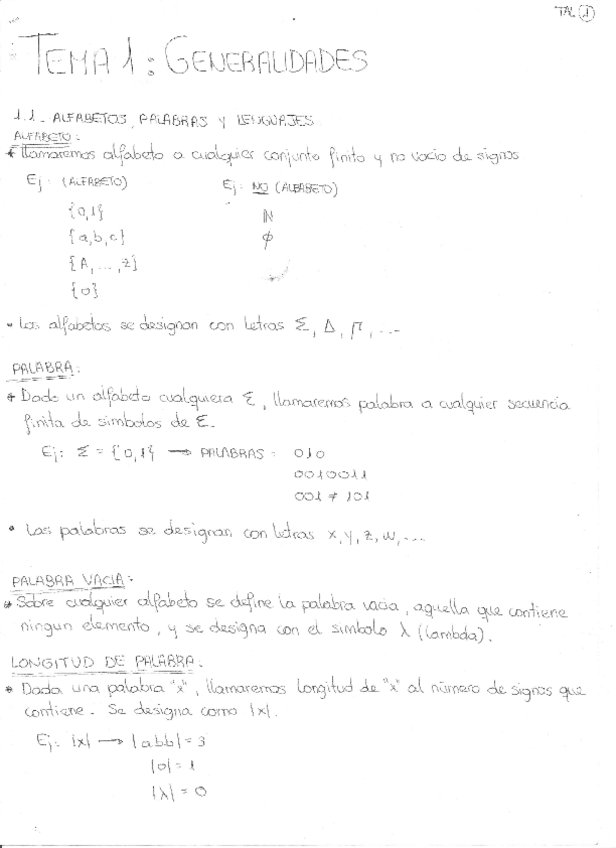 TAL 1
TEMA 1: GENERALIDADES
1.1. ALFABETOS, PALABRAS Y LENGUAJES
ALFABETO:
* llamaremos alfabeto a cualquier conjunto finito y no vacio de signos
Ej: (ALFABETO) Ej: NO (ALFABETO)
{0,1} ℕ
{a,b,c} ϕ
{A,...,z}
{0}
• Los alfabetos se designan con letras Σ, Δ, Γ, ...
PALABRA:
* Dado un alfabeto cualquiera Σ, llamaremos palabra a cualquier secuencia
finita de simbolos de Σ.
Ej: Σ = {0,1} → PALABRAS: 010
0010011
001 ≠ 101
• Las palabras se designan con letras x, y, z, w, ...
PALABRA VACIA:
* Sobre cualquier alfabeto se define la palabra vacia, aquella que contiene
ningun elemento, y se designa con el simbolo λ (lambda).
LONGITUD DE PALABRA:
* Dada una palabra "x", llamaremos longitud de "x" al número de signos que
contiene. Se designa como |x|.
Ej: |x| → |abb| = 3
|0| = 1
|λ| = 0